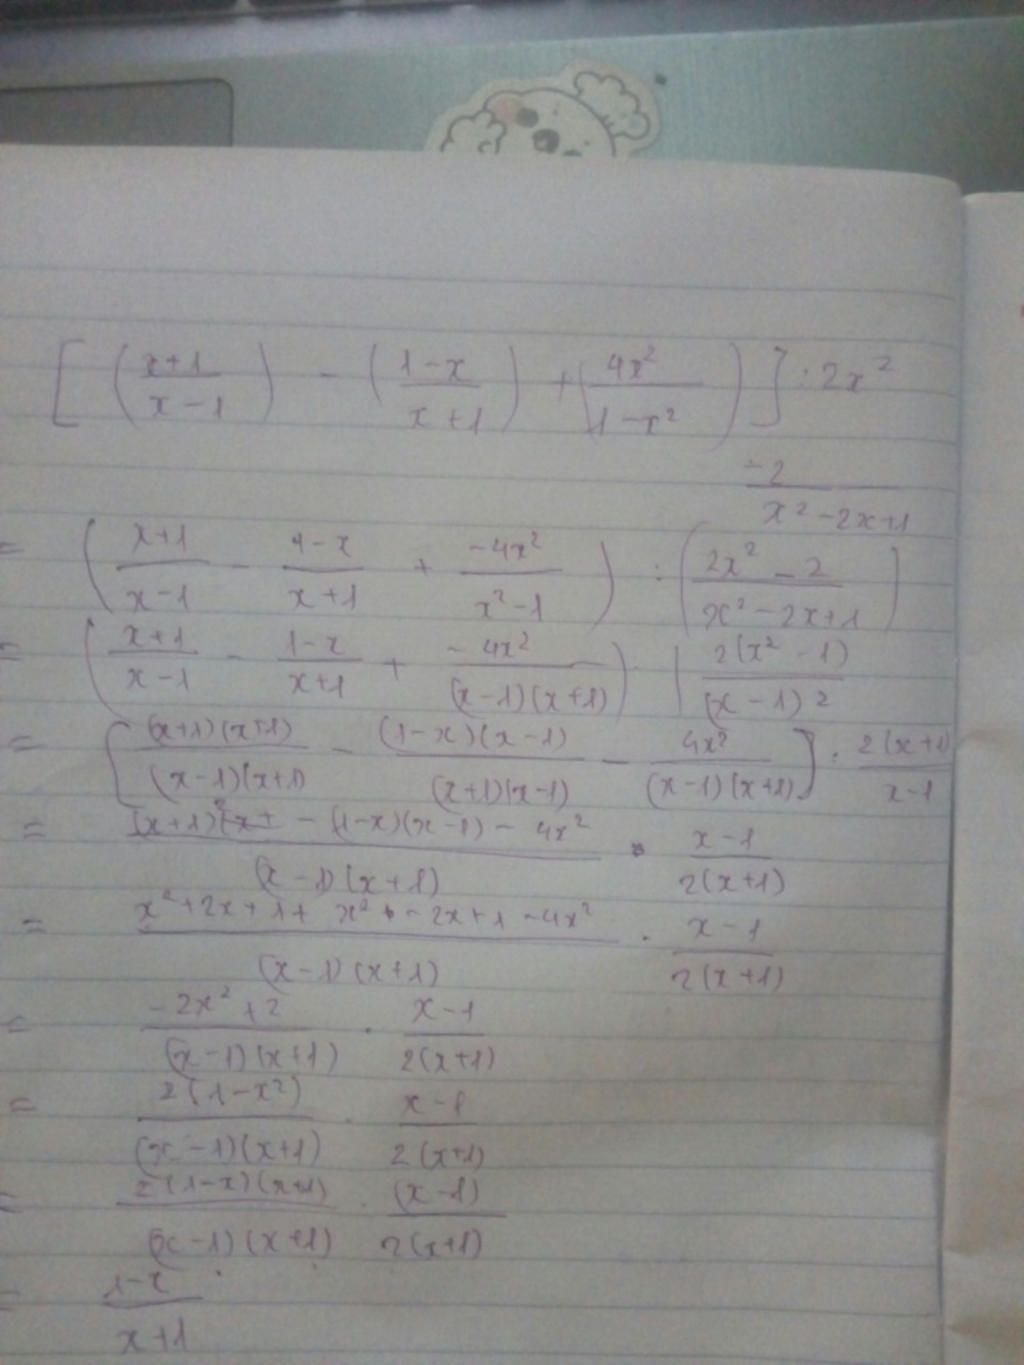 [ ( (x+1)/(x-1) ) - ( (1-x)/(x+1) ) + ( 4x²/(1-x²) ) ] : 2x² -2/(x²-2x+1)
= ( (x+1)/(x-1) - (1-x)/(x+1) + (-4x²)/(x²-1) ) : ( (2x²-2)/(x²-2x+1) )
= ( (x+1)/(x-1) - (1-x)/(x+1) + (-4x²)/((x-1)(x+1)) ) ( 2(x²-1)/(x-1)2
= [ (x+1)(x+1)/((x-1)(x+1)) - (1-x)(x-1)/((x+1)(x-1)) - 4x²/((x-1)(x+1)) ] : 2(x+1)/(x-1)
= ((x+1)² - (1-x)(x-1) - 4x²)/((x-1)(x+1)) · (x-1)/(2(x+1))
= (x²+2x+1+x²-2x+1-4x²)/((x-1)(x+1)) · (x-1)/(2(x+1))
= (-2x²+2)/((x-1)(x+1)) · (x-1)/(2(x+1))
= 2(1-x²)/((x-1)(x+1)) · (x-1)/(2(x+1))
= 2(1-x)(x+1)/((x-1)(x+1)) · (x-1)/(2(x+1))
= (1-x)/(x+1)